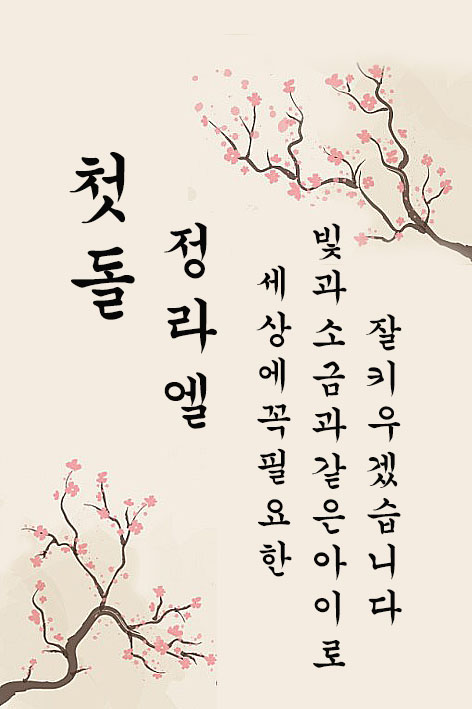 첫돌
정라엘
세상에꼭필요한
빛과소금과같은아이로
잘키우겠습니다